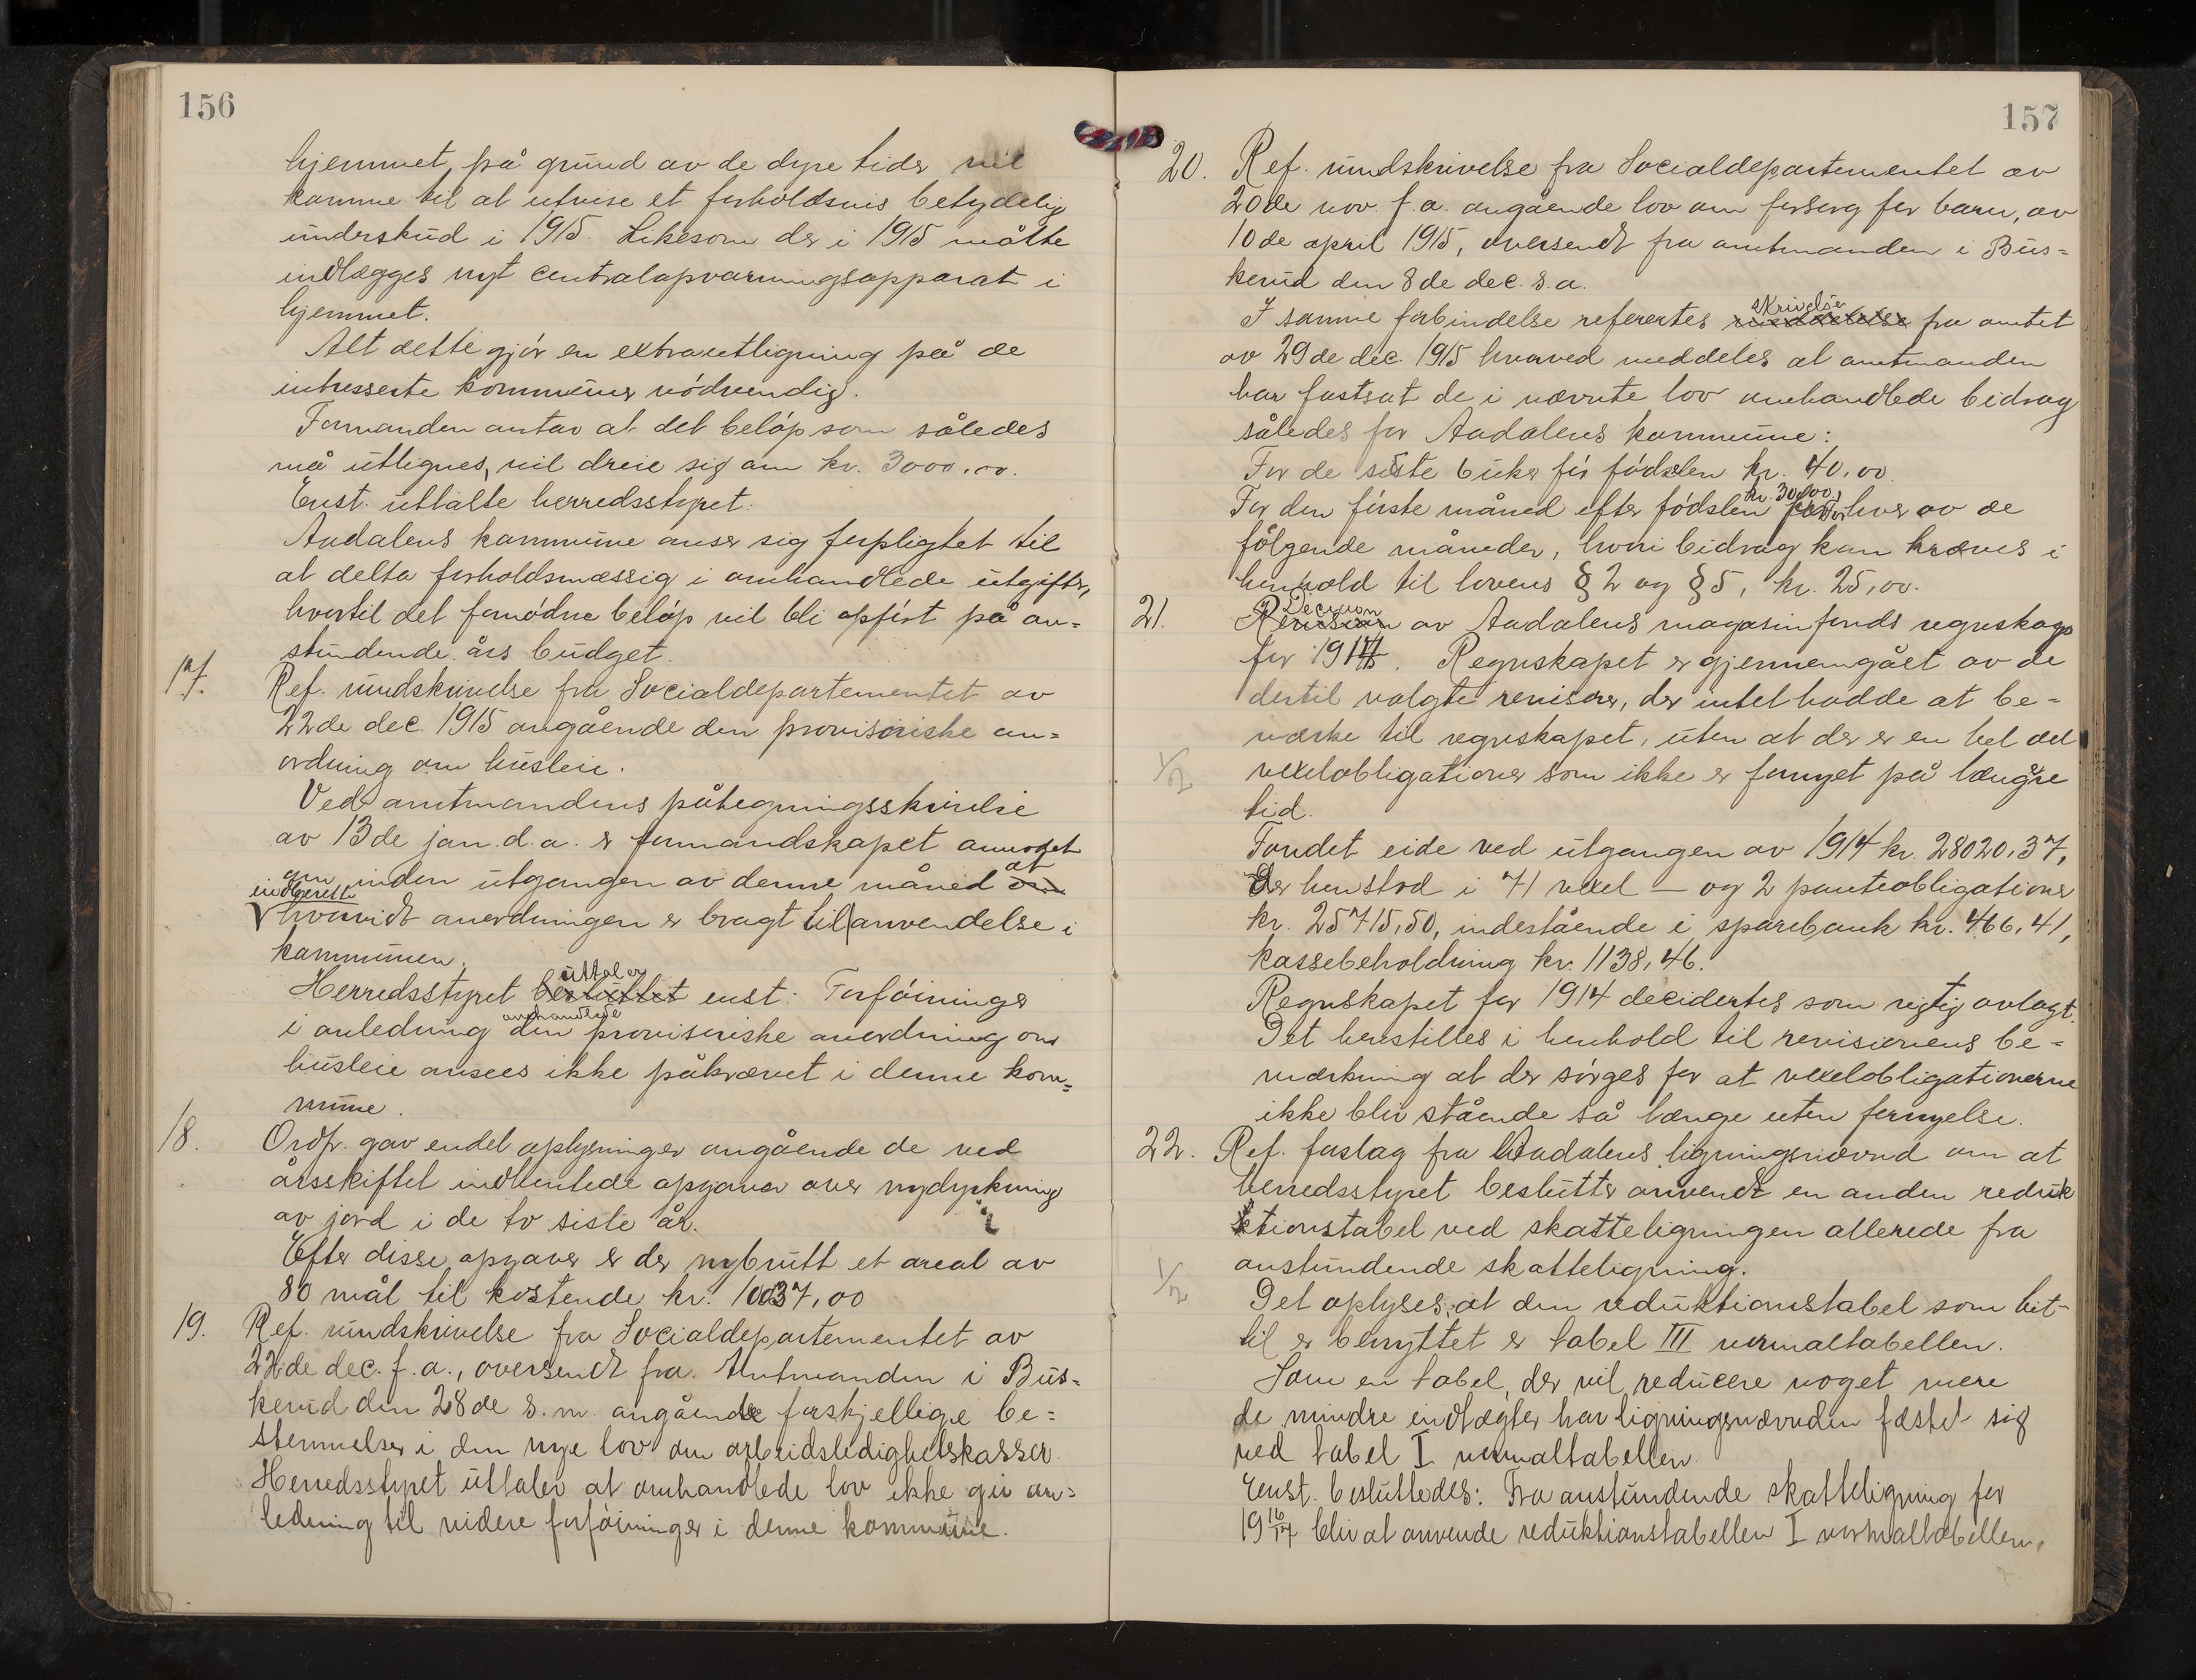 156
hjemmet, på grund av de dyre tider vil
komme til at utvise et forholdsvis betydelig
underskud i 1915. Likesom der i 1915 måtte
indlægges nyt centralopvarmningsapparat i
hjemmet.
Alt dette gjör en extrautligning på de
intresserte kommuner nödvendig.
Formanden antar at det belöp som således
må utlignes, vil dreie sig om kr. 3000,00.
Enst. uttalte herredsstyret:
Aadalens kommune anser sig forpligtet til
at delta forholdsmæssig i omhandlede utgifter,
hvortil det fornödne belöp vil bli opfört på an=
stundende års budget.
17. Ref. rundskrivelse fra Socialdepartementet av
22de dec. 1915 angående den provisoriske an=
ordning om husleie.
Ved amtmandens påtegningsskrivelse
av 13de jan. d.a. er formandskapet anmodet
om inden utgangen av denne måned at
indberette
hvorvidt anordningen er bragt til anvendelse i
kommunen.
uttaler
Herredsstyret besluttet enst: Forföininger
omhandlede
i anledning den provisoriske anordning om
husleie ansees ikke påkrævet i denne kom=
mune.
18. Ordf. gav endel oplysninger angående de ved
årsskiftet indhentede opgaver over nydyrkning
av jord i de to siste år.
Efter disse opgaver er der nybrutt et areal av
80 mål til kostende kr. 10037,00
19. Ref. rundskrivelse fra Socialdepartementet av
22de dec. f.a., oversendt fra Amtmanden i Bus=
kerud den 28de s.m. angående forskjellige be=
stemmelser i den nye lov om arbeidsledighetskasser.
Herredsstyret uttaler at omhandlede lov ikke gir an=
ledning til videre forföininger i denne kommune.
157
20. Ref. rundskrivelse fra Socialdepartementet av
20de nov. f.a. angående lov om forsorg for barn, av
10de april 1915, oversendt fra amtmanden i Bus=
kerud den 8de dec. s.a.
skrivelse
I samme forbindelse refertes fra amtet
av 29de dec. 1915 hvorved meddeles at amtmanden
har fastsat de i nævnte lov omhandlede bidrag
således for Aadalens kommune:
For de siste 6 uker för födselen kr. 40,00.
kr. 30,00,
For den förste måned efter födslen For hver av de
fölgende måneder, hvori bidrag kan kræves i
henhold til lovens § 2 og § 5, kr. 25,00.
Decision
21. Revision av Aadalens magasinfonds regnskap
for 1914. Regnskapet er gjennemgået av de
dertil valgte revisorer, der intet hadde at be=
mærke til regnskapet, uten at der er en hel del
1/2 vexelobligationer som ikke er fornyet på længre
tid.
Fondet eide ved utgangen av 1914 kr. 28020,37,
der henstod i 71 vexel – og 2 panteobligationer
kr. 25715,50, indestående i sparebank kr. 466,41,
kassebeholdning kr. 1138,46.
Regnskapet for 1914 decidertes som rigtig avlagt.
Det henstilles i henhold til revisionens be=
mærkning at der sörges for at vexelobligationerne
ikke blir stående så længe uten fornyelse.
22. Ref. forslag fra Aadalens ligningsnævnd om at
herredsstyret beslutter anvendt en anden reduk
ktionstabel ved skatteligningen allerede fra
1/2 anstundende skatteligning.
Det oplyses, at den reduktionstabel som hit-
til er benyttet er tabel III normaltabellen.
Som en tabel, der vil reducere noget mere
de mindre indtægter har ligningsnævnden fæstet sig
ved tabel I normaltabellen.
Enst. besluttedes: Fra anstundende skatteligning for
19 16/17 blir at anvende reduktionstabellen I normaltabellen.